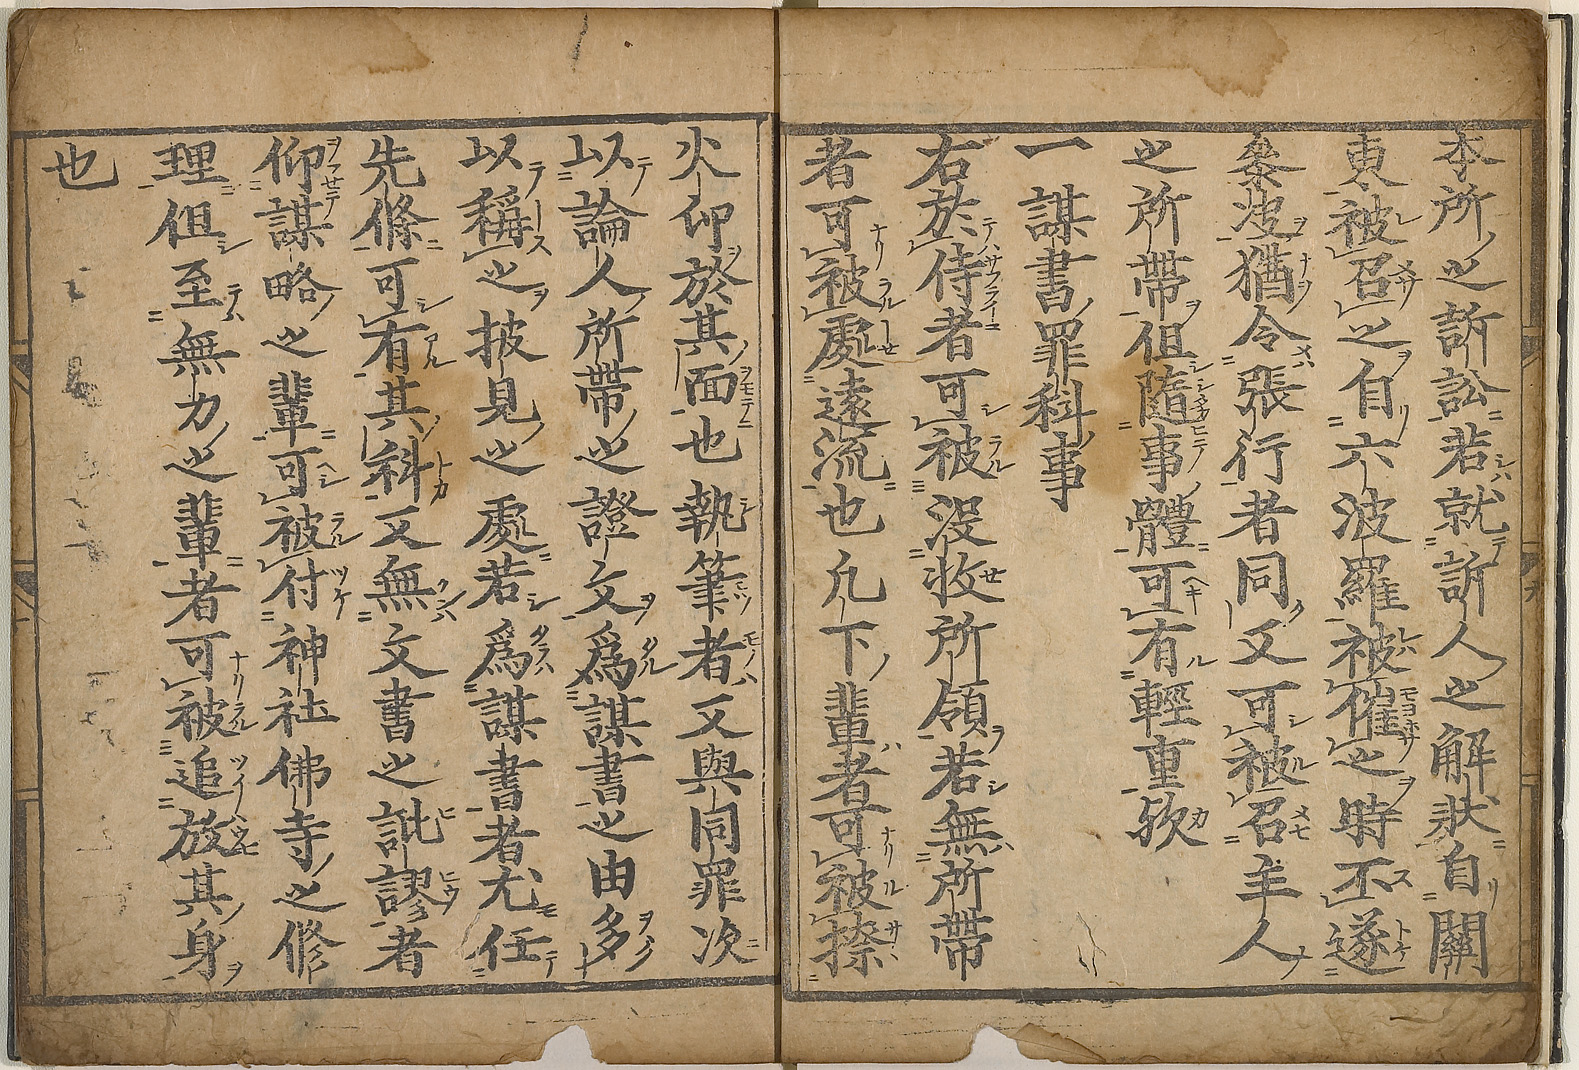 本所之訴訟若就訴人之解狀自關
東被召之自六波羅被催之時不遂
叅决猶令張行者同又可被召主人
之所帶但隨事體可有輕重歟
一 謀書罪科事
右於侍者可被没收所領若無所帶
者可被處遠流也凢下輩者可被捺
火印於其面也執筆者又與同罪次
以論人所帶之證文爲謀書之由多
以稱之披見之處若爲謀書者尤任
先條可有其科又無文書之訿謬者
仰謀略之輩可被付神社佛寺之修
理但至無力之輩者可被追放其身
也